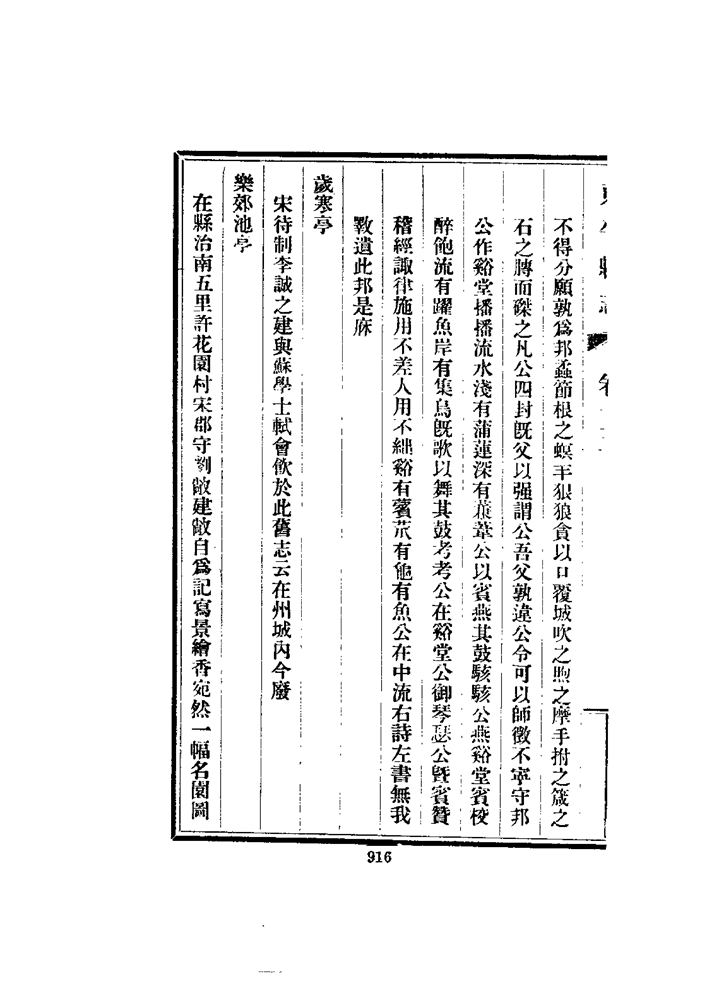 不得分願孰爲邦蟊節根之螟羊狠狼貪以口覆城吹之煦之摩手拊之箴之
石之膊而磔之凡公四封既父以强謂公吾父孰違公令可以師徵不寧守邦
公作谿堂播播流水淺有蒲蓮深有蒹葦公以賓燕其鼓駭駭公燕谿堂賓校
醉飽流有躍魚岸有集鳥既歌以舞其鼓考考公在谿堂公御琴瑟公曁賓贊
稽經諏律施用不差人用不絀谿有薲苽有龜有魚公在中流右詩左書無我
斁遺此邦是庥
歲寒亭
宋待制李誠之建與蘇學士軾會飲於此舊志云在州城內今廢
樂郊池亭
在縣治南五里許花園村宋郡守劉敞建敞自爲記寫景繪香宛然一幅名園圖
916